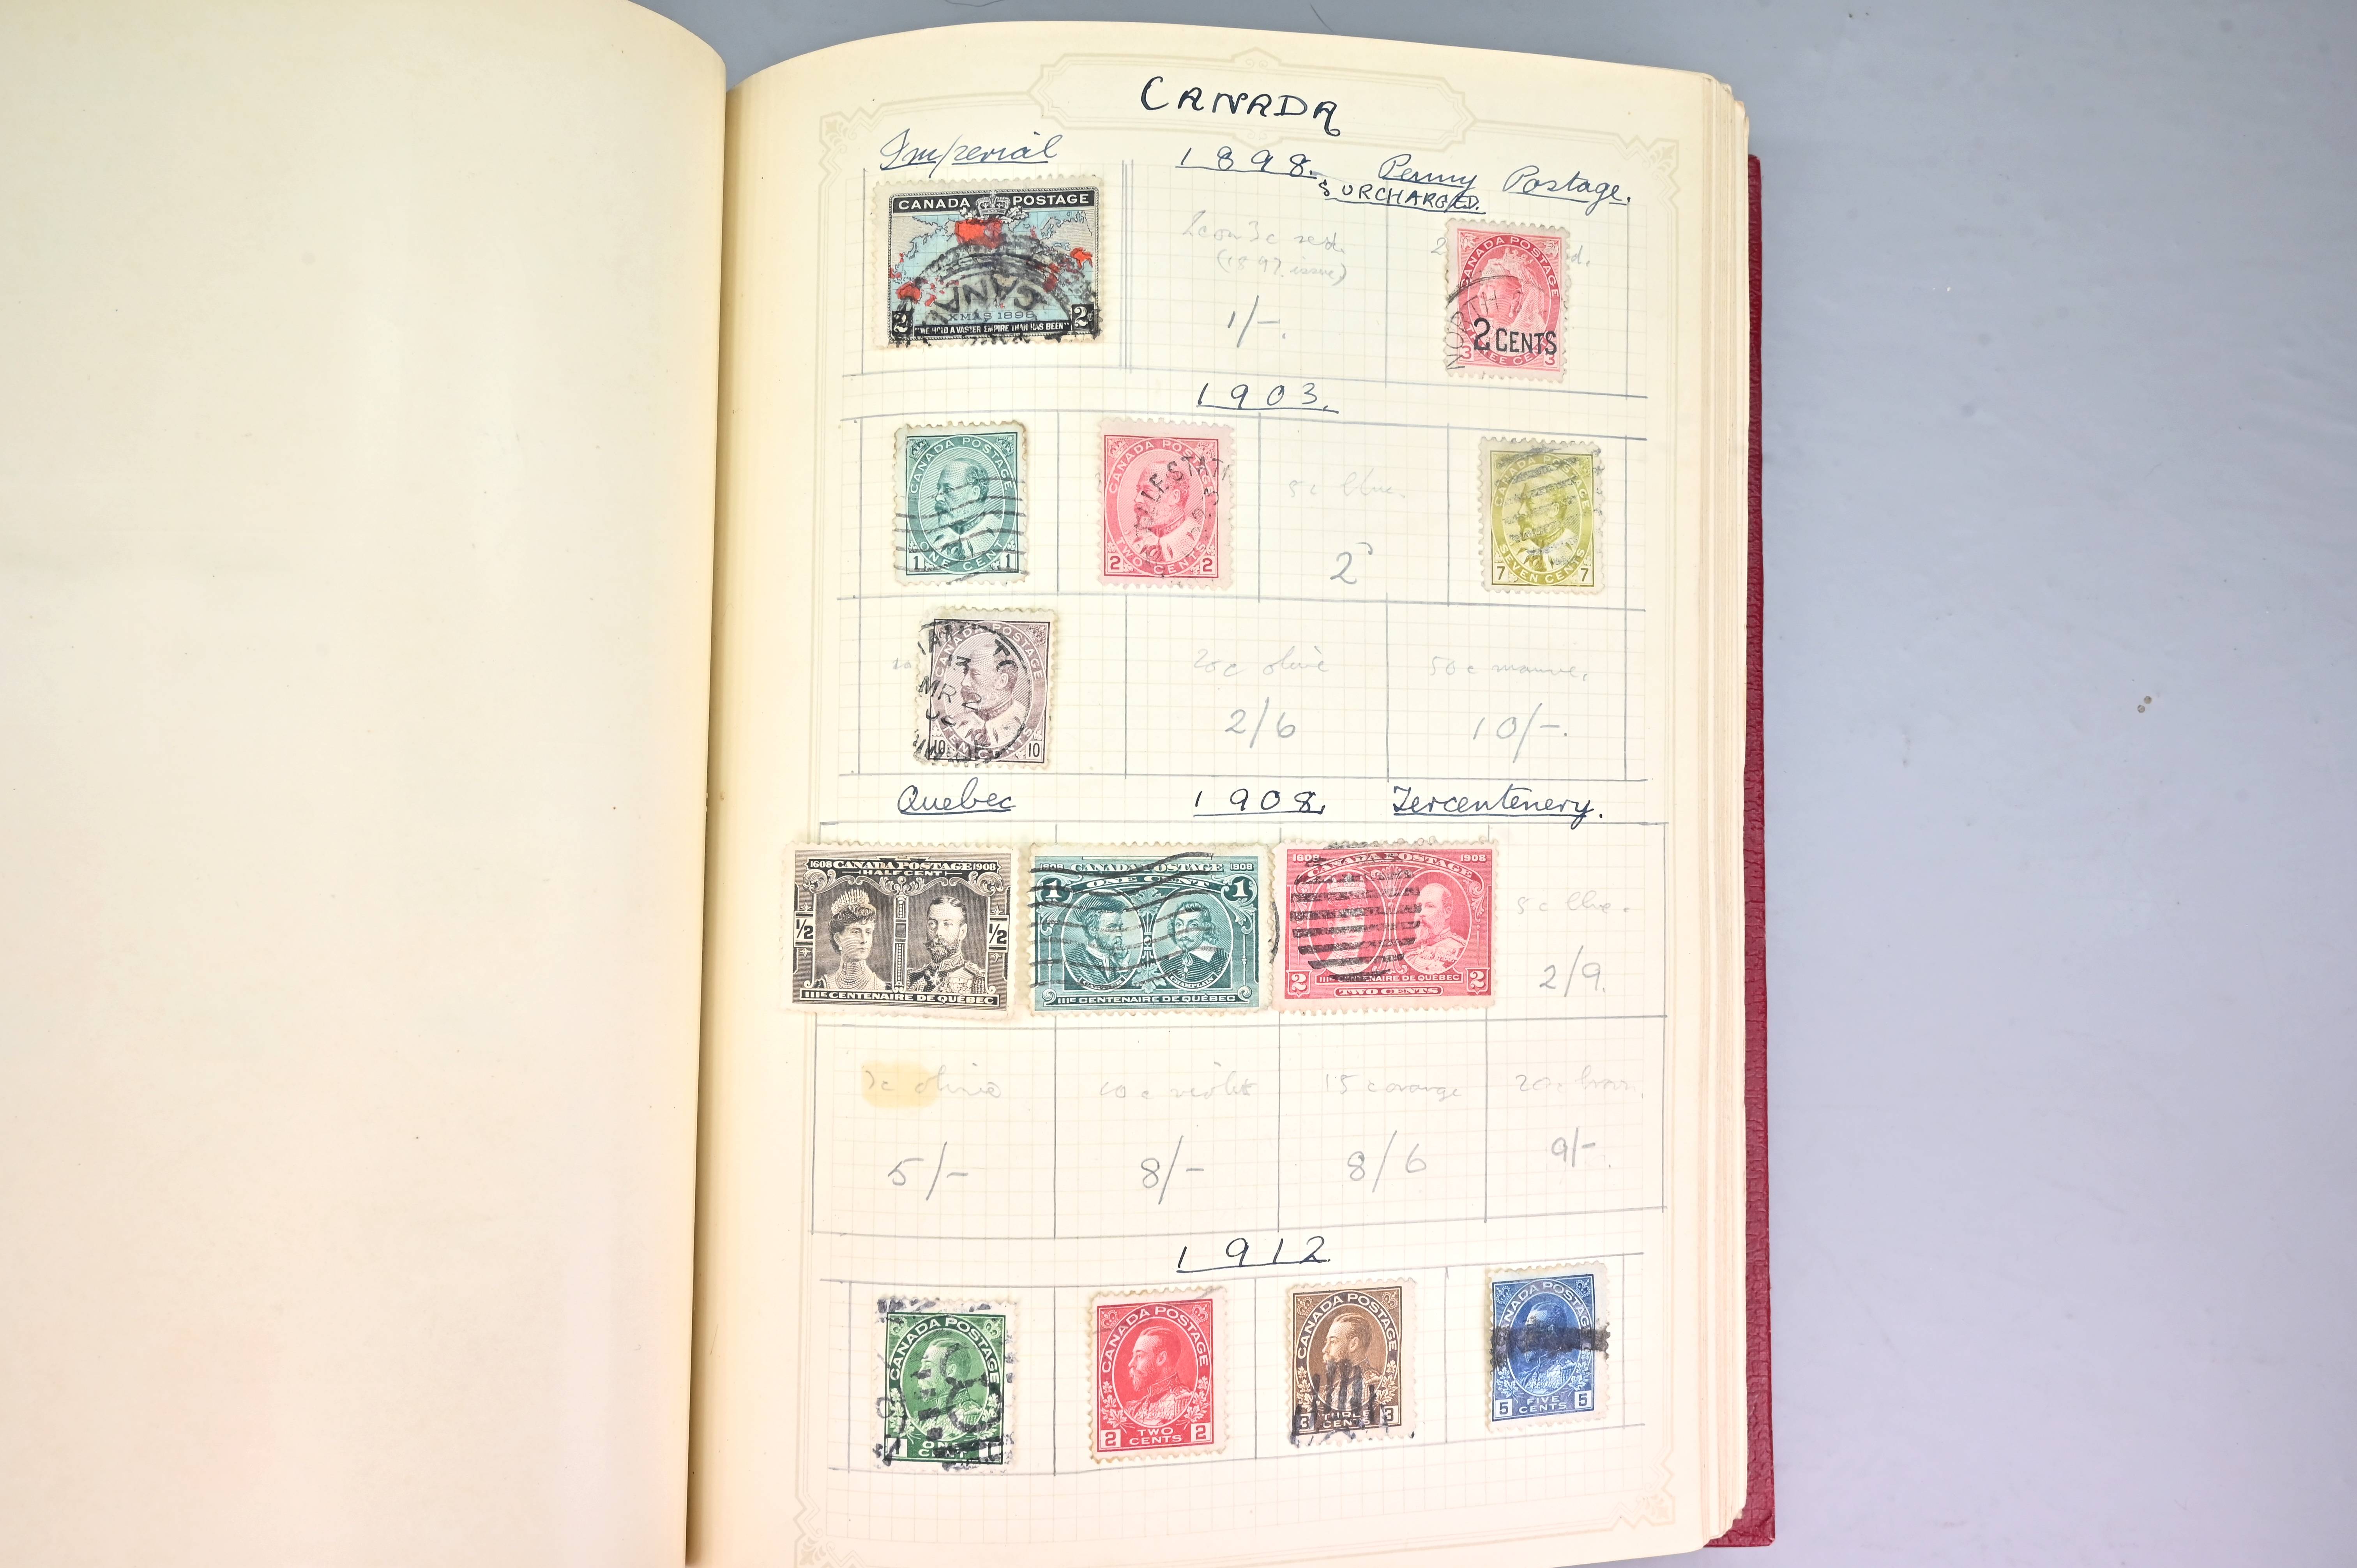 CANADA
Imperial 1898. Penny Postage.
SURCHARGED.
CANADA POSTAGE
CANA
XMAS 1898
2 "WE HOLD A VASTER EMPIRE THAN HAS BEEN" 2
2c on 3c red.
(1897 issue)
1/-.
2 d.
CANADA POSTAGE
NORTH
2 CENTS
3 THREE CENTS 3
1903.
CANADA POSTAGE
1 ONE CENT 1
CANADA POSTAGE
LE STATI
2 TWO CENTS 2
5c blue.
2
CANADA POSTAGE
7 SEVEN CENTS 7
10
CANADA POSTAGE
13
MR 2
10 TEN CENTS 10
20c olive
2/6
50c mauve.
10/-.
Quebec 1908. Tercentenery.
1608 CANADA POSTAGE 1908
HALF CENT
1/2 1/2
IIIE CENTENAIRE DE QUÉBEC
1608 CANADA POSTAGE 1908
1 ONE CENT 1
CARTIER CHAMPLAIN
IIIE CENTENAIRE DE QUÉBEC
1608 CANADA POSTAGE 1908
2 IIIE CENTENAIRE DE QUÉBEC 2
TWO CENTS
5c blue.
2/9.
7c olive
5/-
10c violet
8/-
15c orange
8/6
20c brown.
9/-.
1912
CANADA POSTAGE
1 ONE CENT 1
CANADA POSTAGE
2 TWO CENTS 2
CANADA POSTAGE
3 THREE CENTS 3
CANADA POSTAGE
5 FIVE CENTS 5